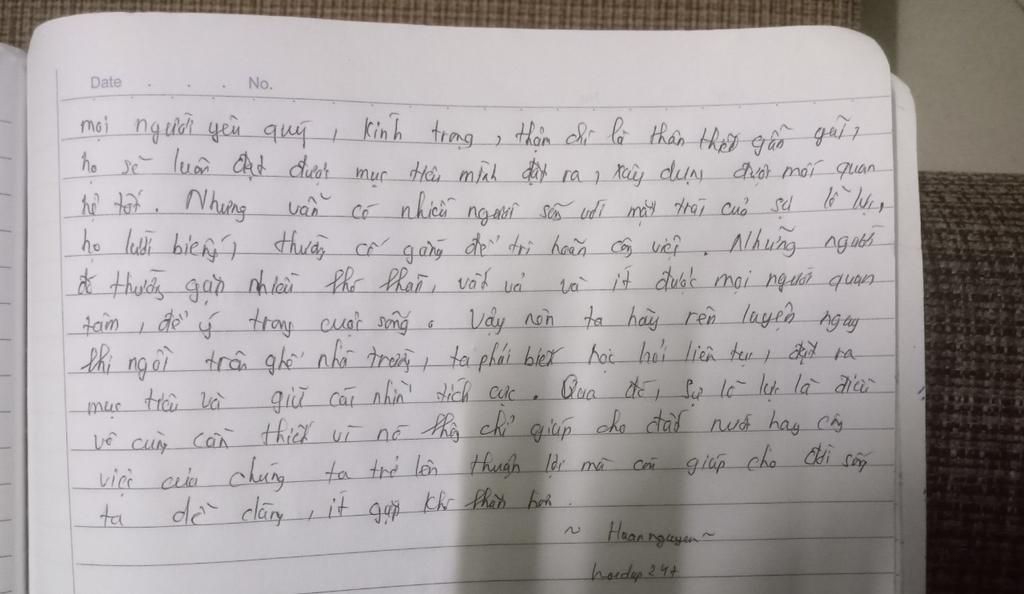 Date . . . No.
mọi người yêu quý, kính trọng, thậm chí là thân thiết gần gũi,
họ sẽ luôn đạt được mục tiêu mình đặt ra, xây dựng được mối quan
hệ tốt. Nhưng vẫn có nhiều người sống với mặt trái của sự lỗ lực,
họ lười biếng, thường cố gắng để trì hoãn công việc. Những người
đó thường gặp nhiều khó khăn, vất vả và ít được mọi người quan
tâm, để ý trong cuộc sống. Vậy nên ta hãy rèn luyện ngay
khi ngồi trên ghế nhà trường, ta phải biết học hỏi liên tục, đặt ra
mục tiêu và giữ cái nhìn tích cực. Qua đó, sự lỗ lực là điều
vô cùng cần thiết vì nó không chỉ giúp cho đất nước hay công
việc của chúng ta trở lên thuận lợi mà còn giúp cho đời sống
ta dễ dàng, ít gặp khó khăn hơn.
~ Hoannguyen ~
hoidap247